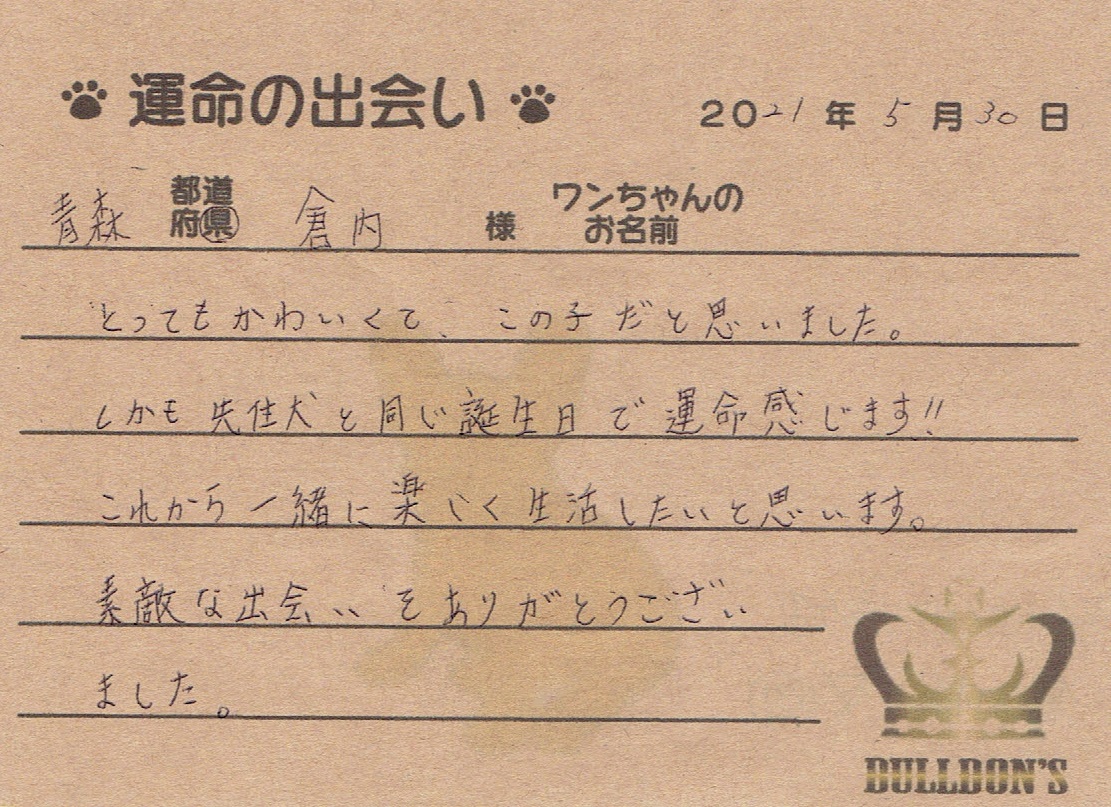 運命の出会い 2021年5月30日
青森 都道府県 倉内 様 ワンちゃんのお名前
とってもかわいくて、この子だと思いました。
しかも先住犬と同じ誕生日で運命感じます!!
これから一緒に楽しく生活したいと思います。
素敵な出会いをありがとうござい
ました。
BULLDON'S